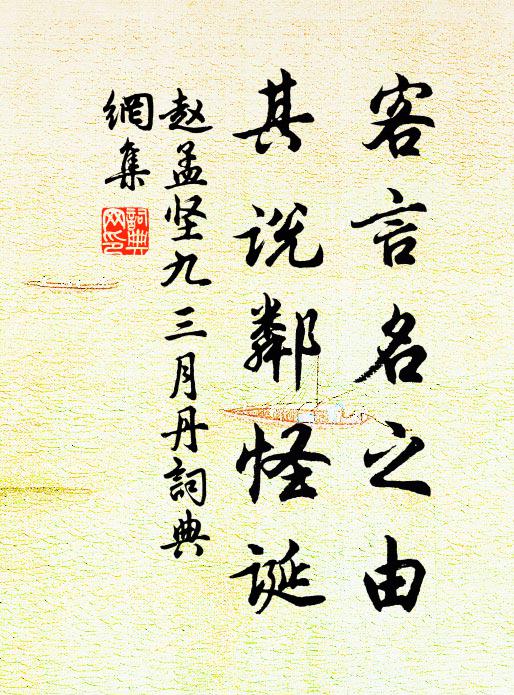 客言名之由
其说鄰怪诞
赵孟坚九三月丹詞典
網集
詞典
网印